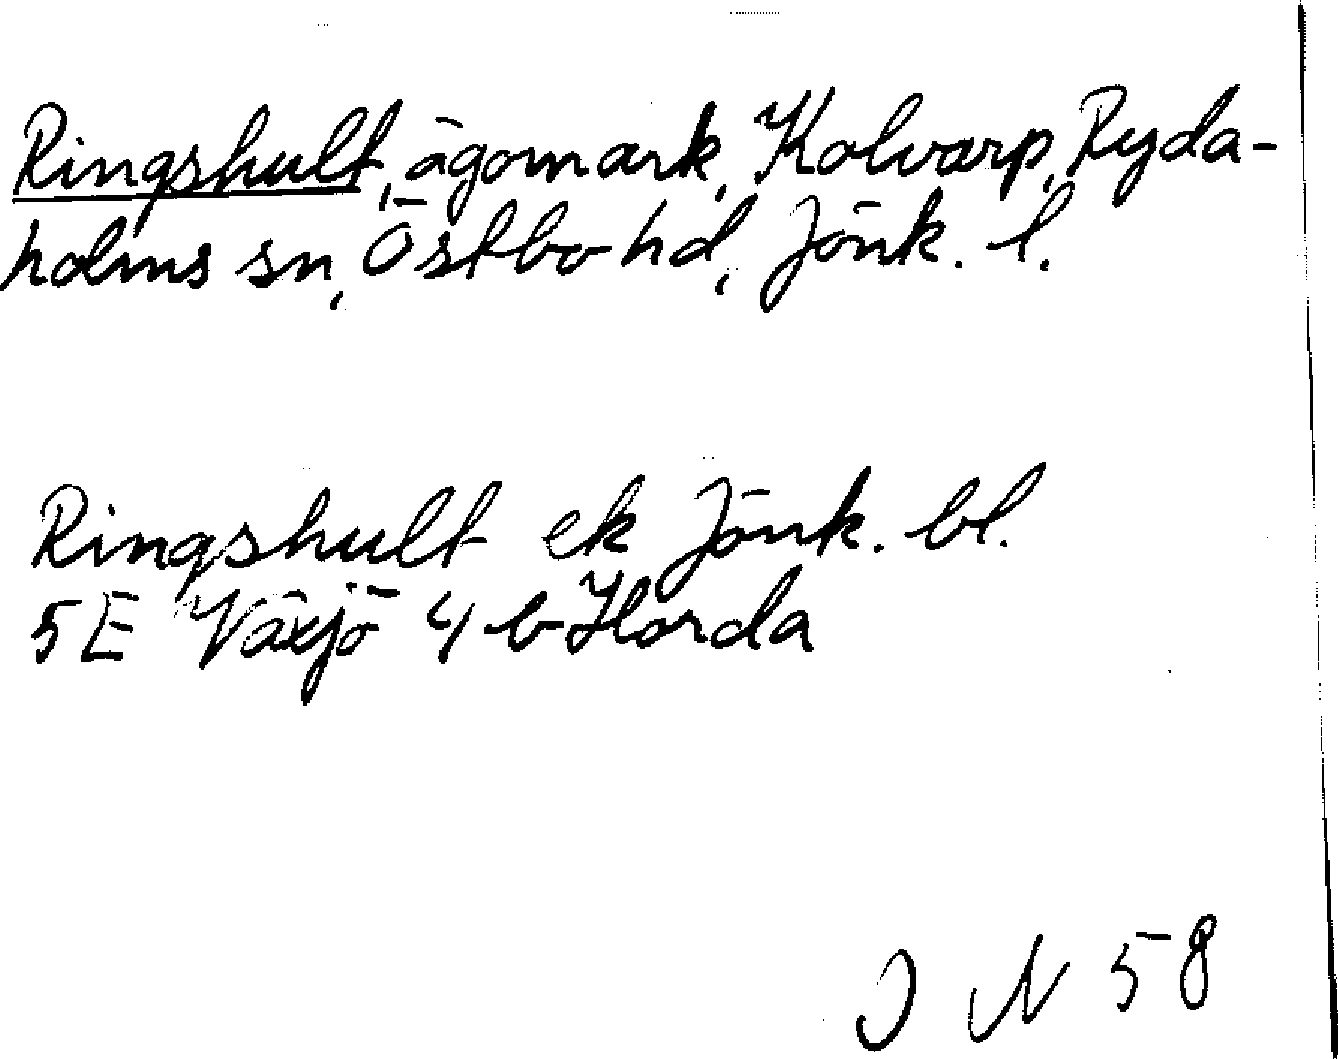 Ringshult, ägomark, Kolvarp, Ryda-
holms sn, Östbo hd, Jönk. l.
Ringshult ek Jönk. bl.
5E Växjö 4 b Horda
J N 58